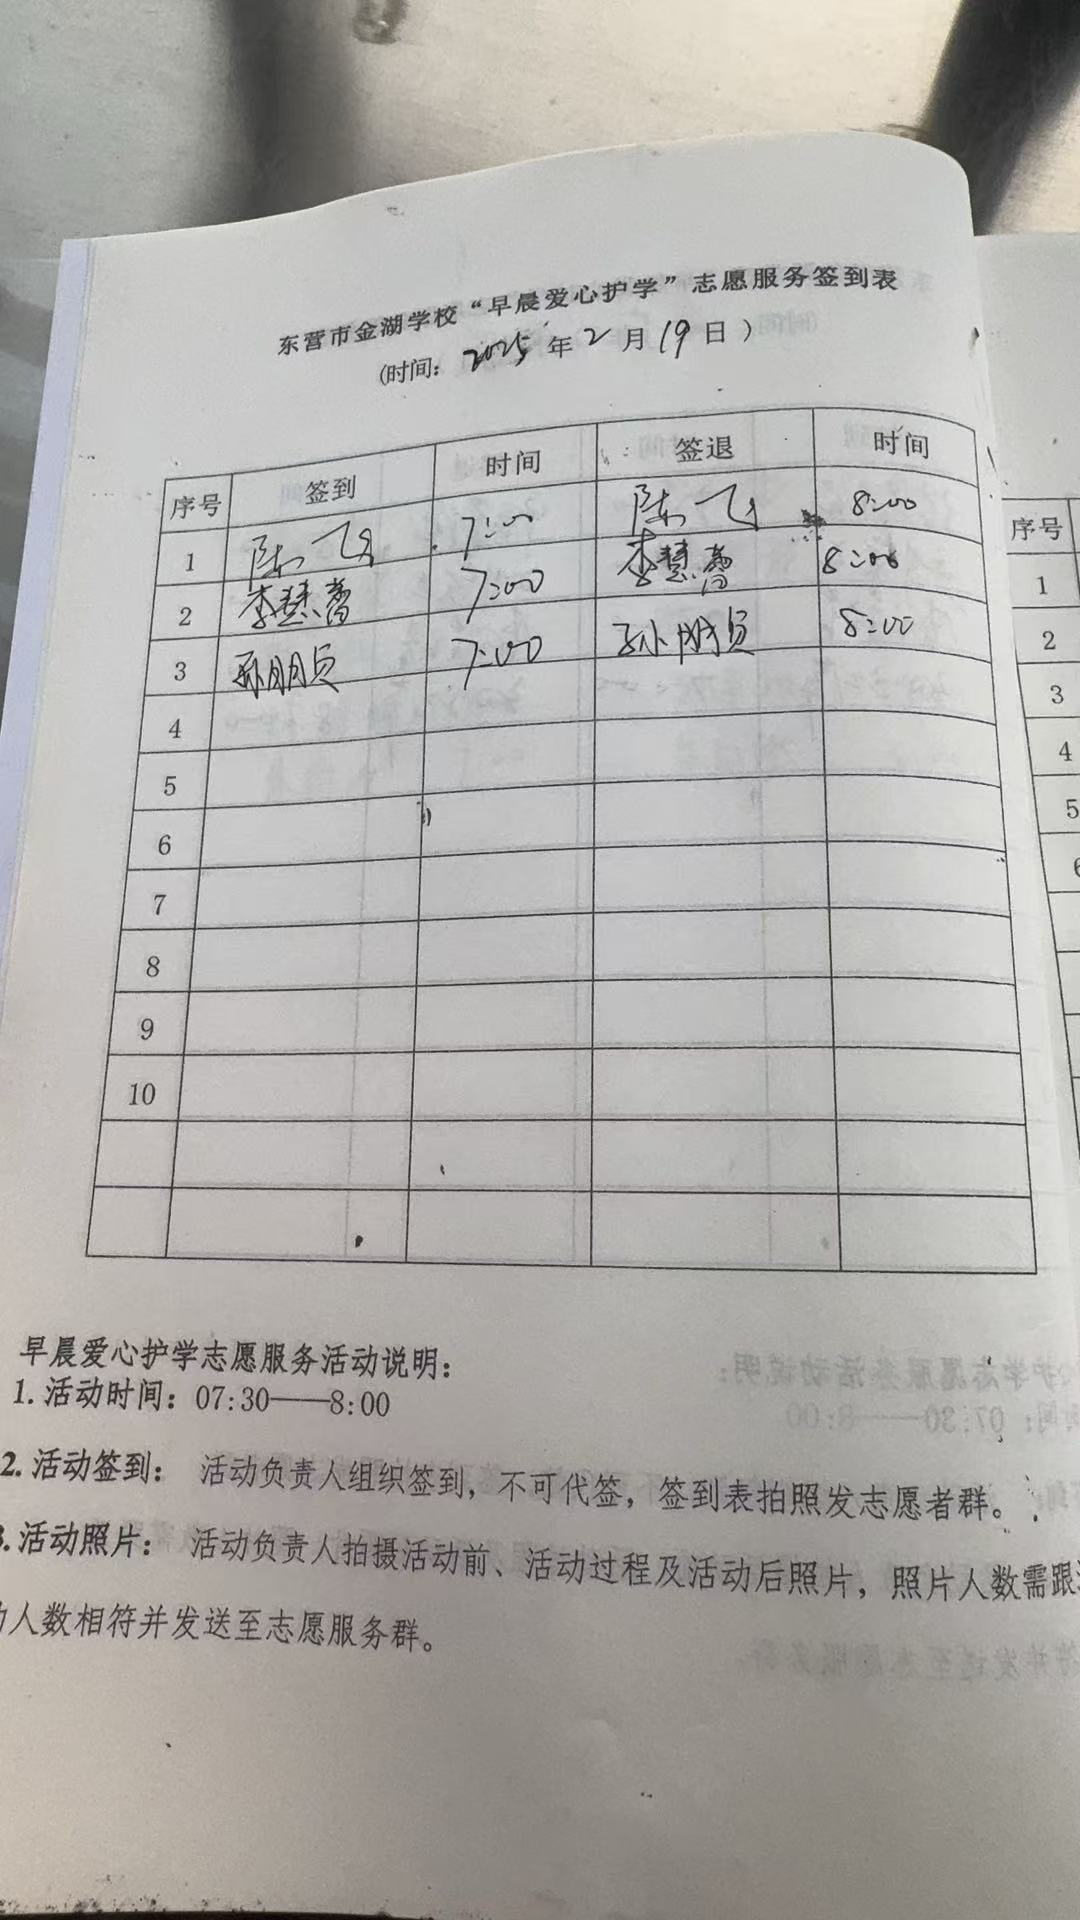 东营市金湖学校“早晨爱心护学”志愿服务签到表
(时间: 2025年2月19日)
序号 签到 时间 签退 时间
1 陈飞 7:00 陈飞 8:00
2 李慧蕾 7:00 李慧蕾 8:00
3 孙朋员 7:00 孙朋员 8:00
4
5
6
7
8
9
10
早晨爱心护学志愿服务活动说明:
1. 活动时间: 07:30——8:00
2. 活动签到: 活动负责人组织签到, 不可代签, 签到表拍照发志愿者群。
3. 活动照片: 活动负责人拍摄活动前、活动过程及活动后照片, 照片人数需跟
人数相符并发送至志愿服务群。
序号
1
2
3
4
5
6